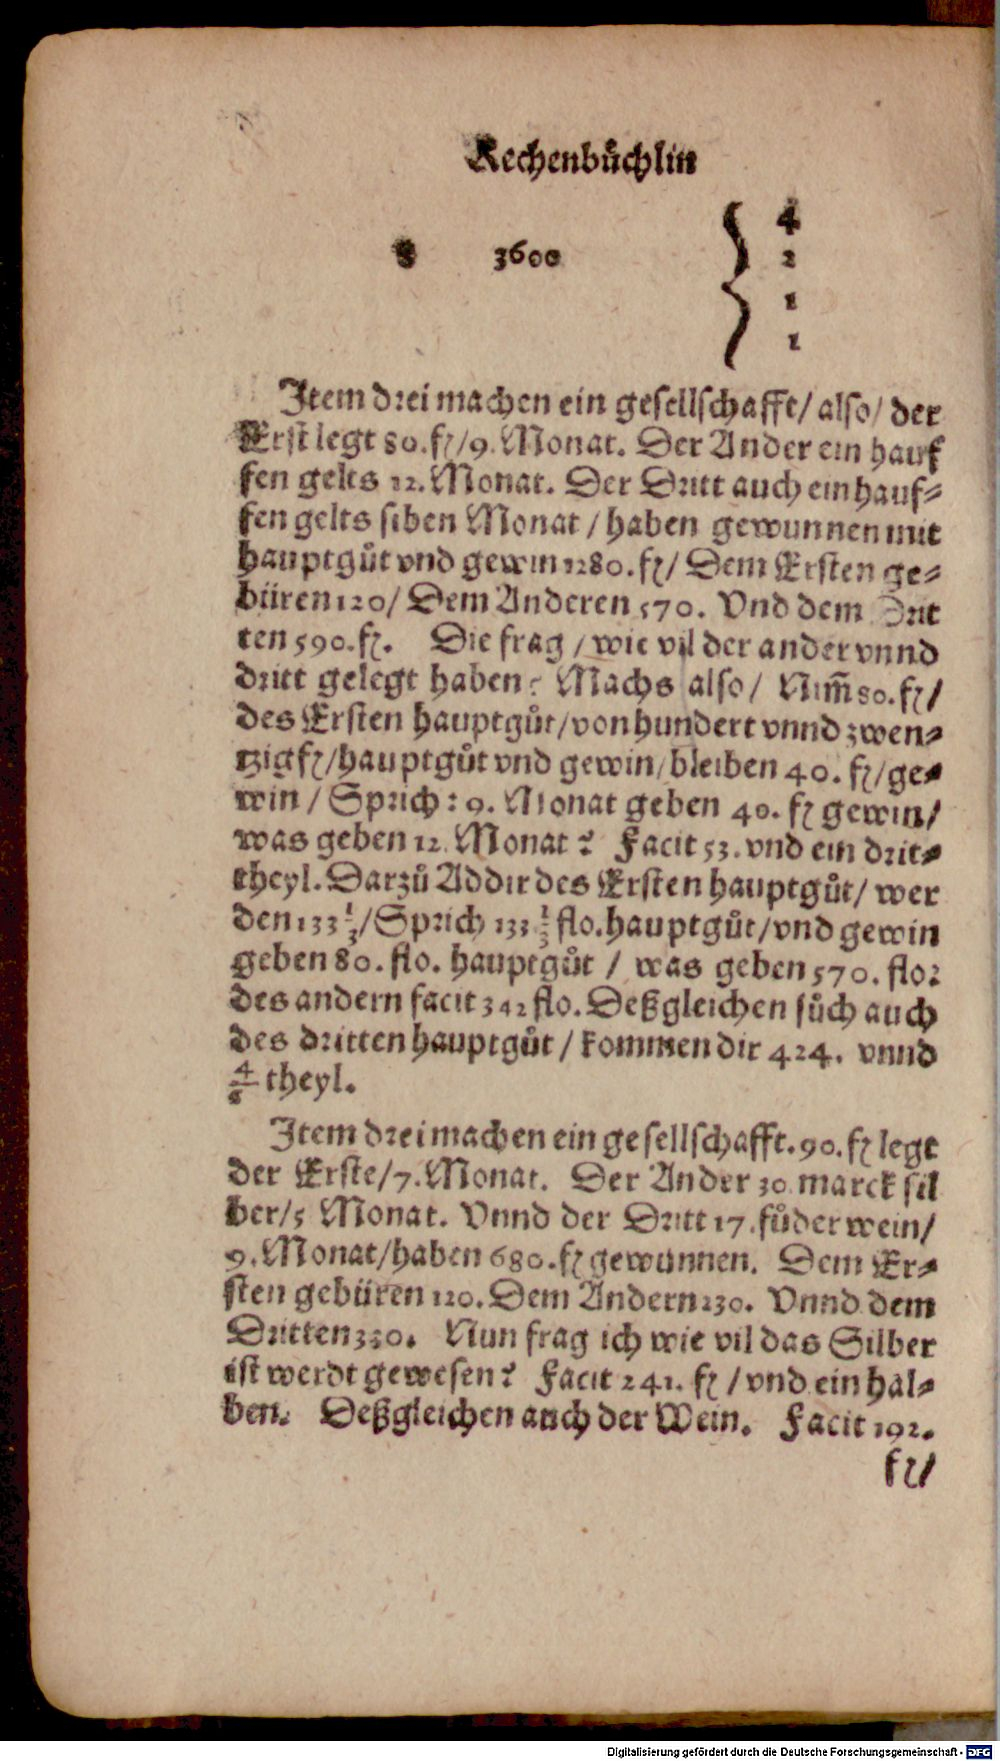 Rechenbuͤchlin
8 3600 4
2
1
1
Item drei machen ein gesellschafft/ also/ der
Erst legt 80. fl/9. Monat. Der Ander ein hauf
fen gelts 12. Monat. Der Dritt auch ein hauf⸗
fen gelts siben Monat / haben gewunnen mit
hauptguͦt vnd gewin 1280. fl/ Dem Ersten ge⸗
büren 120/ Dem Anderen 570. Vnd dem Drit
ten 590. fl. Die frag / wie vil der ander vnnd
dritt gelegt haben? Machs also/ Nim̄ 80. fl/
des Ersten hauptguͦt/ von hundert vnnd zwen⸗
tzig fl/ hauptguͦt vnd gewin/ bleiben 40. fl/ ge⸗
win / Sprich: 9. Monat geben 40. fl gewin/
was geben 12. Monat? Facit 53. vnd ein drit⸗
theyl. Darzuͦ Addir des Ersten hauptguͦt/ wer
den 133 1/3/ Sprich 133 1/3 flo. hauptguͦt/ vnd gewin
geben 80. flo. hauptguͦt / was geben 570. flo?
des andern facit 342 flo. Deßgleichen suͦch auch
des dritten hauptguͦt / kommen dir 424. vnnd
4/6 theyl.
Item drei machen ein gesellschafft. 90. fl legt
der Erste/7. Monat. Der Ander 30 marck sil
ber/5 Monat. Vnnd der Dritt 17. fuͦder wein/
9. Monat/ haben 680. fl gewunnen. Dem Er⸗
sten gebüren 120. Dem Andern 230. Vnnd dem
Dritten 330. Nun frag ich wie vil das Silber
ist werdt gewesen? Facit 241. fl / vnd ein hal⸗
ben. Deßgleichen auch der Wein. Facit 192.
fl/
Digitalisierung gefördert durch die Deutsche Forschungsgemeinschaft - DFG